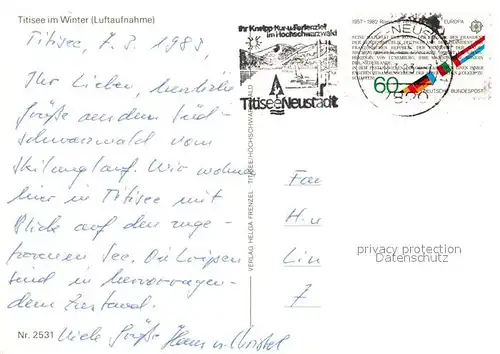 Titisee im Winter (Luftaufnahme)
Titisee, 7.3.1983,
Ihr Lieben, herzliche
Grüße aus dem Süd-
schwarzwald vom
Skilanglauf. Wir wohnen
hier in Titisee mit
Blick auf den zuge-
frorenen See. Die Loipen
sind in hervorragen-
dem Zustand.
Viele Grüße Hans u. Christel
Nr. 2531
VERLAG HELGA FRENZEL · TITISEE/HOCHSCHWARZWALD
Ihr Kneipp Kur-u.Ferienziel
im Hochschwarzwald
Titisee Neustadt
1957-1982
EUROPA
60
DEUTSCHE BUNDESPOST
Fam
H. u
Lin
7
privacy protection
Datenschutz